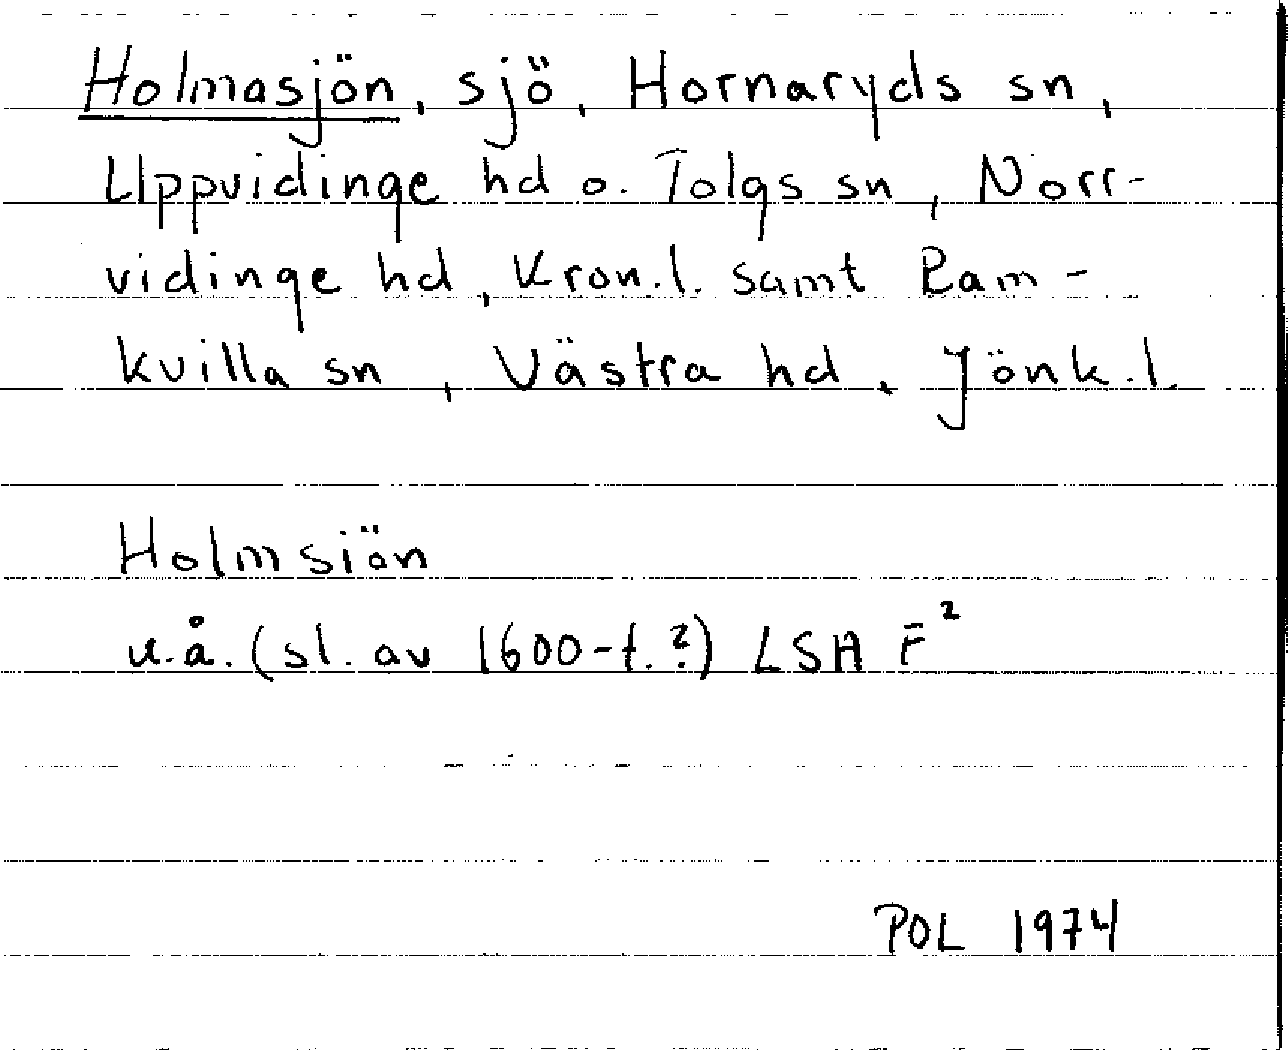 Holmasjön, sjö, Hornaryds sn,
Uppvidinge hd o. Tolgs sn, Norr-
vidinge hd, Kron.l. samt Ram-
kvilla sn, Västra hd, Jönk.l.
Holmsiön
u.å. (sl. av 1600-t.?) LSA F²
POL 1974